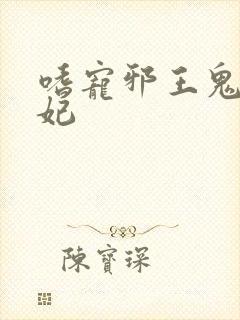 嗜寵邪王鬼
妃
陳寶琛